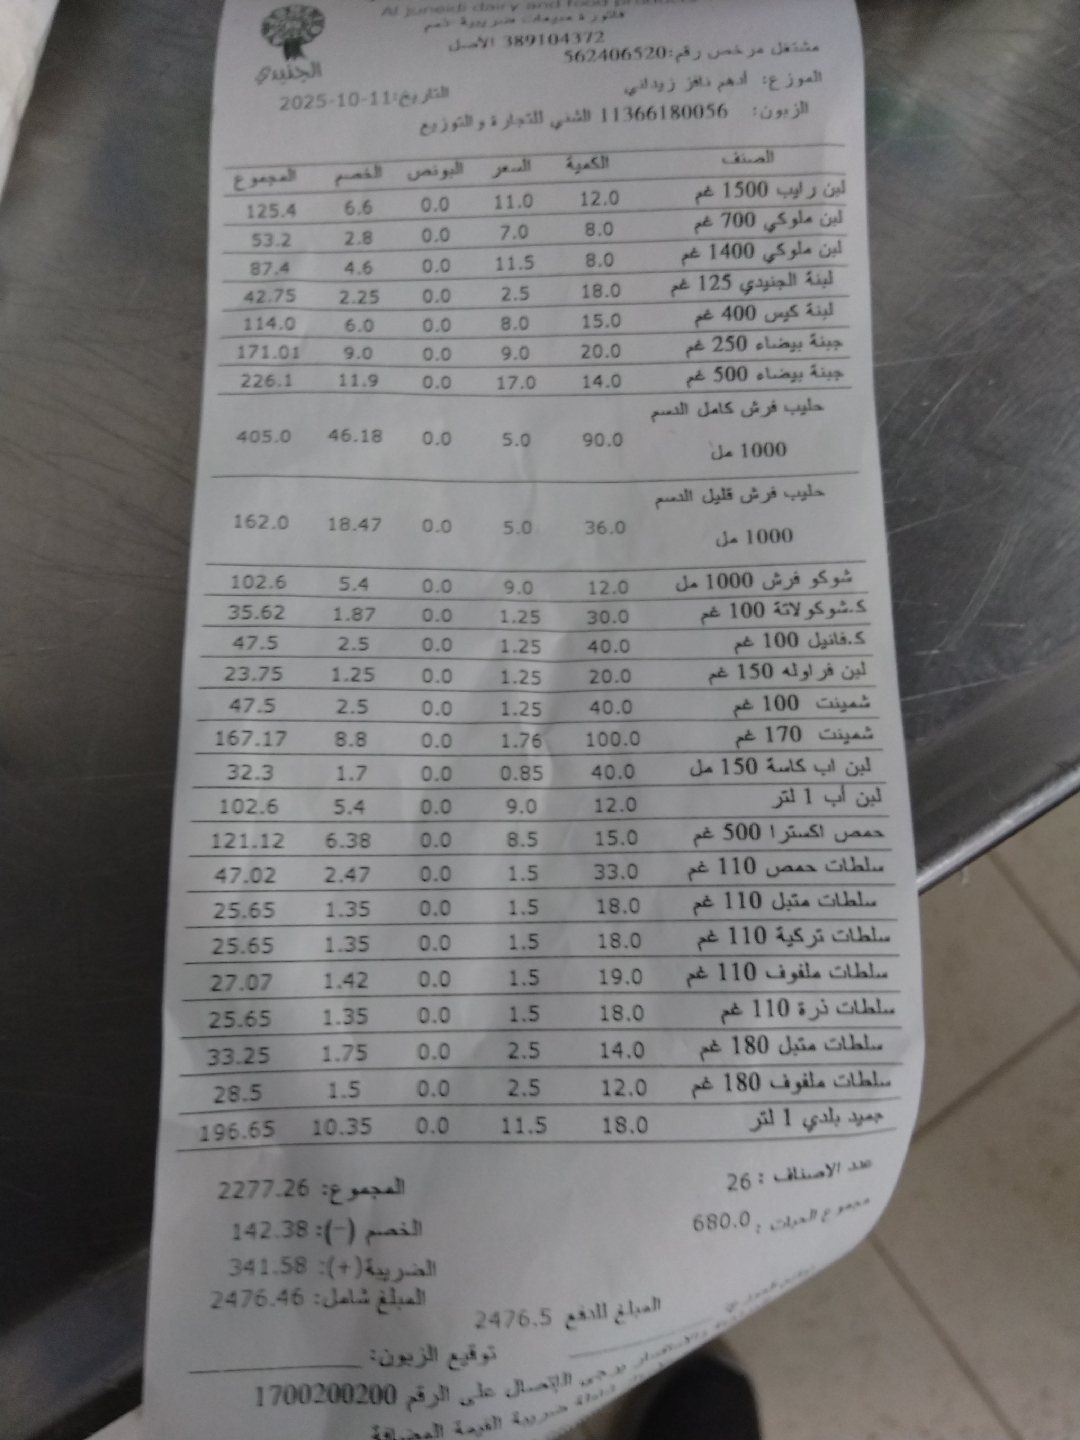 Al juneidi dairy and food products
الجنيدي
فاتورة مبيعات ضريبية
389104372 الأصل
مشتغل مرخص رقم:562406520
الموزع: أدهم نافز زيداني
التاريخ:2025-10-11
الزبون: 11366180056 الشني للتجارة والتوزيع
الصنف الكمية السعر البونص الخصم المجموع
لبن رايب 1500 غم 12.0 11.0 0.0 6.6 125.4
لبن ملوكي 700 غم 8.0 7.0 0.0 2.8 53.2
لبن ملوكي 1400 غم 8.0 11.5 0.0 4.6 87.4
لبنة الجنيدي 125 غم 18.0 2.5 0.0 2.25 42.75
لبنة كيس 400 غم 15.0 8.0 0.0 6.0 114.0
جبنة بيضاء 250 غم 20.0 9.0 0.0 9.0 171.01
جبنة بيضاء 500 غم 14.0 17.0 0.0 11.9 226.1
حليب فرش كامل الدسم
1000 مل 90.0 5.0 0.0 46.18 405.0
حليب فرش قليل الدسم
1000 مل 36.0 5.0 0.0 18.47 162.0
شوكو فرش 1000 مل 12.0 9.0 0.0 5.4 102.6
ك.شوكولاتة 100 غم 30.0 1.25 0.0 1.87 35.62
ك.فانيل 100 غم 40.0 1.25 0.0 2.5 47.5
لبن فراوله 150 غم 20.0 1.25 0.0 1.25 23.75
شمينت 100 غم 40.0 1.25 0.0 2.5 47.5
شمينت 170 غم 100.0 1.76 0.0 8.8 167.17
لبن اب كاسة 150 مل 40.0 0.85 0.0 1.7 32.3
لبن أب 1 لتر 12.0 9.0 0.0 5.4 102.6
حمص اكسترا 500 غم 15.0 8.5 0.0 6.38 121.12
سلطات حمص 110 غم 33.0 1.5 0.0 2.47 47.02
سلطات متبل 110 غم 18.0 1.5 0.0 1.35 25.65
سلطات تركية 110 غم 18.0 1.5 0.0 1.35 25.65
سلطات ملفوف 110 غم 19.0 1.5 0.0 1.42 27.07
سلطات ذرة 110 غم 18.0 1.5 0.0 1.35 25.65
سلطات متبل 180 غم 14.0 2.5 0.0 1.75 33.25
سلطات ملفوف 180 غم 12.0 2.5 0.0 1.5 28.5
جميد بلدي 1 لتر 18.0 11.5 0.0 10.35 196.65
عدد الاصناف : 26
المجموع: 2277.26
مجموع الحبات : 680.0
الخصم (-): 142.38
الضريبة(+): 341.58
المبلغ شامل: 2476.46
المبلغ للدفع 2476.5
توقيع الزبون:
يرجى الإتصال على الرقم 1700200200
ضريبة القيمة المضافة